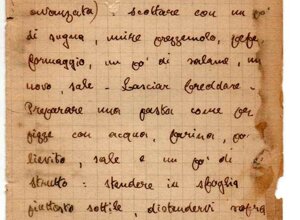 avanzata) scottare con un po'
di sugna, unire prezzemolo, pepe
formaggio, un po' di salame, un
uovo, sale - Lasciar freddare -
Preparare una pasta come per
pizze con acqua, farina, po'
lievito, sale e un po' di
strutto: stendere in sfoglia
piuttosto sottile, distendervi sopra